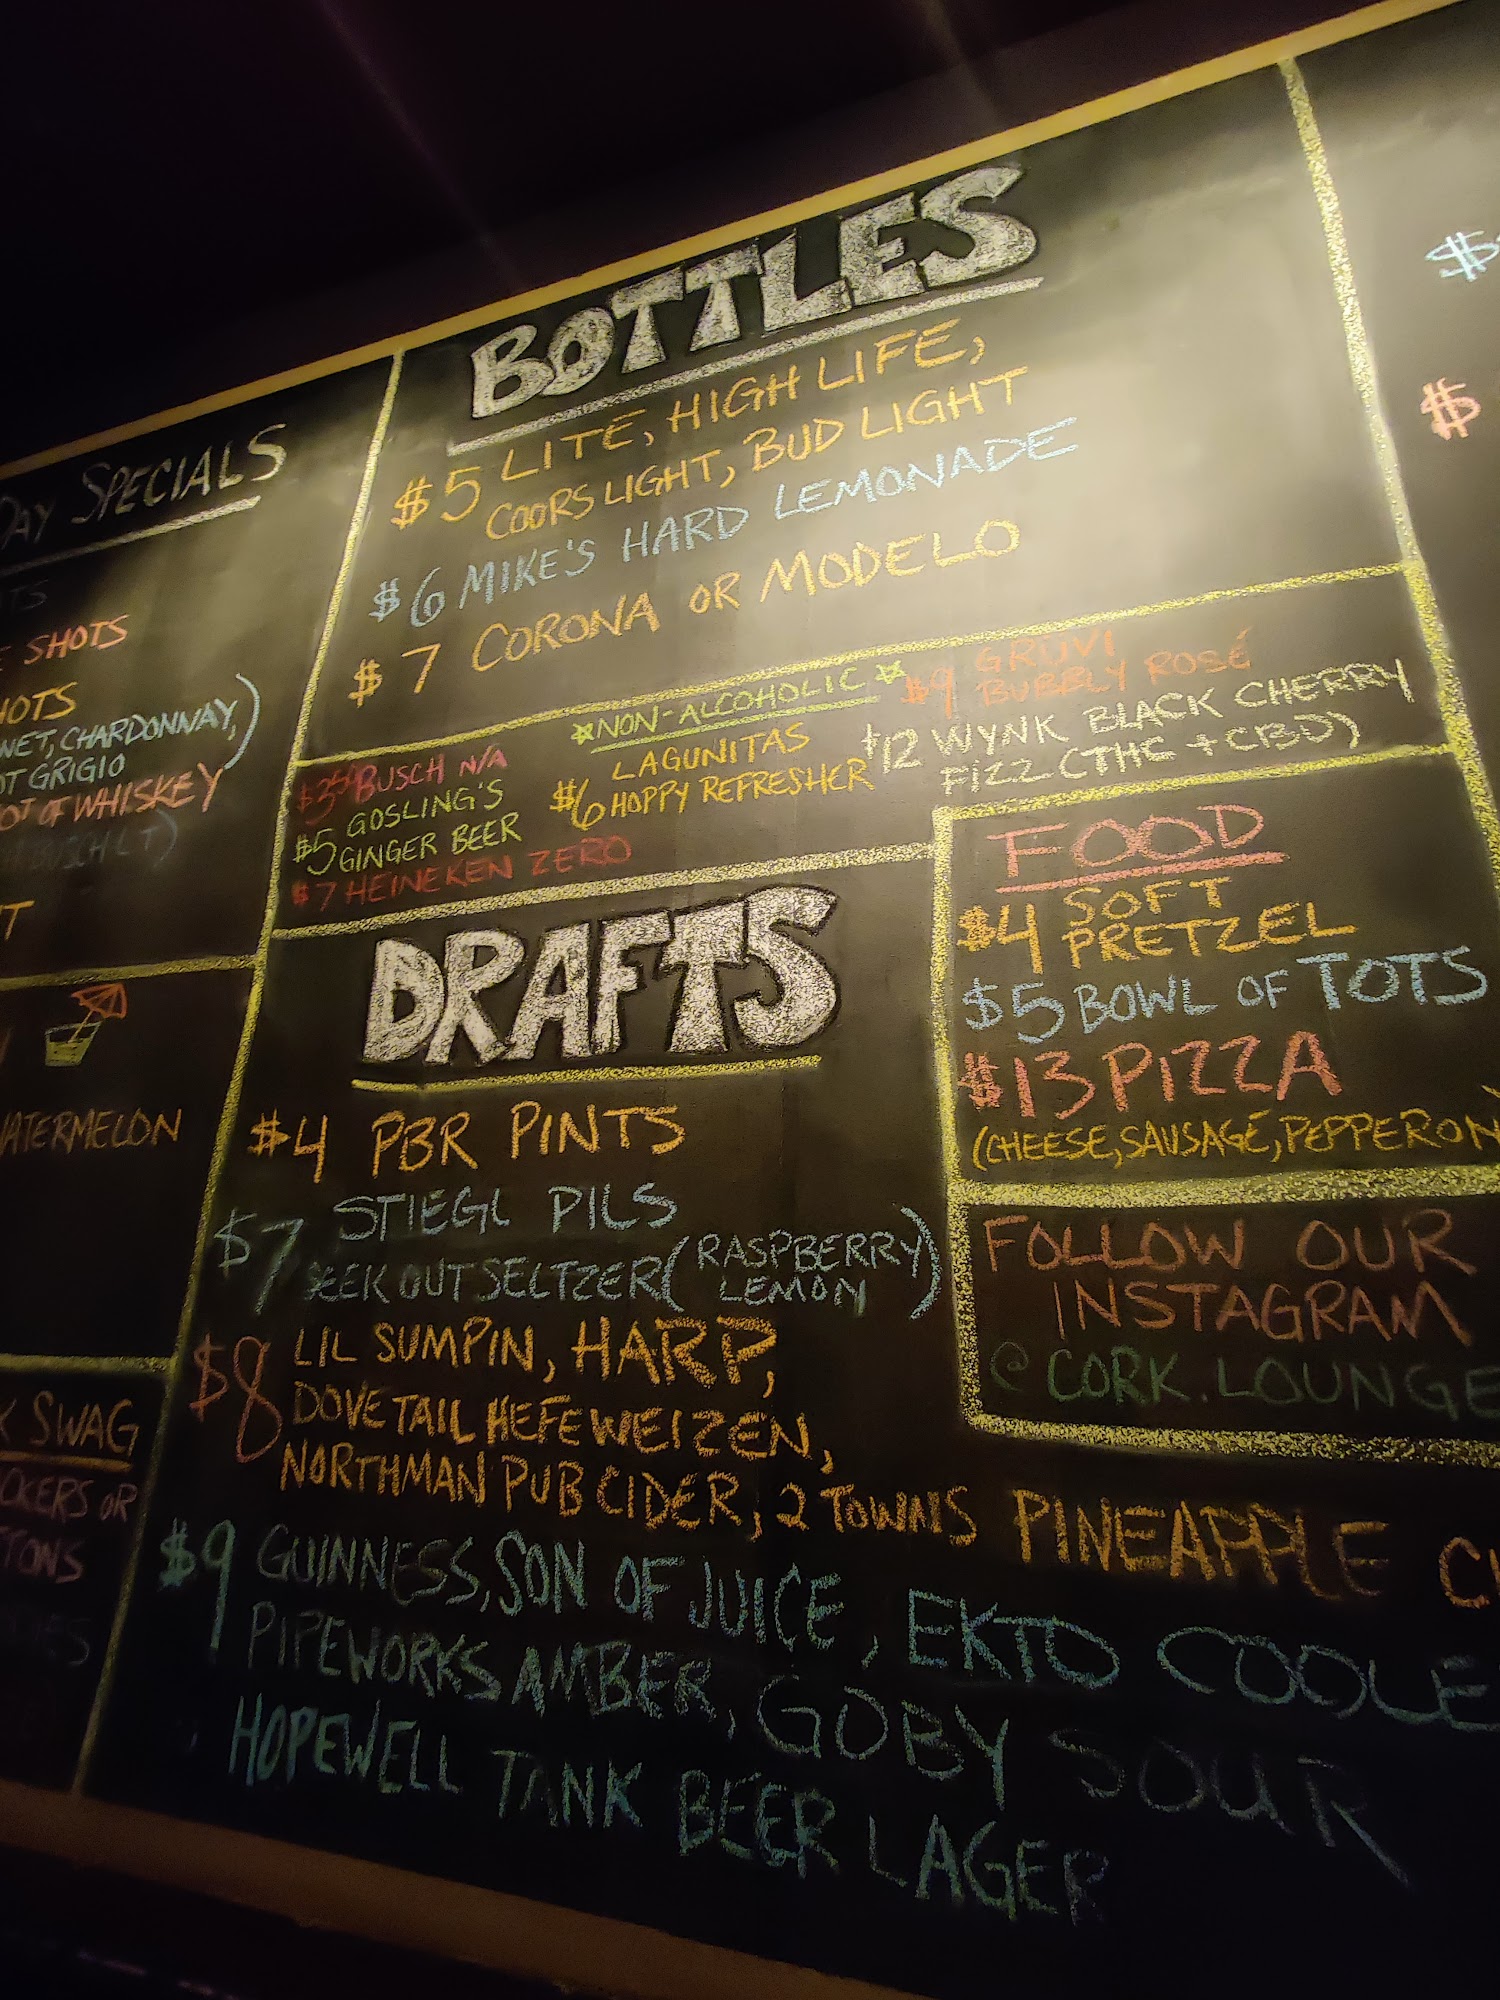 DAY SPECIALS
SHOTS
NET, CHARDONNAY,)
OT GRIGIO
OT OF WHISKEY
BUSCH LT)
WATERMELON
SWAG
OR
BOTTLES
$5 LITE, HIGH LIFE,
COORS LIGHT, BUD LIGHT
$6 MIKE'S HARD LEMONADE
$7 CORONA OR MODELO
☆NON-ALCOHOLIC☆
BUSCH N/A
$5 GOSLING'S
GINGER BEER
$7 HEINEKEN ZERO
$6 LAGUNITAS
HOPPY REFRESHER
$9 GRÜVI
BUBBLY ROSÉ
$12 WYNK BLACK CHERRY
FIZZ (THC + CBD)
DRAFTS
$4 PBR PINTS
$7 STIEGL PILS
SEEK OUT SELTZER (RASPBERRY
LEMON)
$8 LIL SUMPIN, HARP,
DOVETAIL HEFEWEIZEN,
NORTHMAN PUB CIDER, 2 TOWNS PINEAPPLE CI
$9 GUINNESS, SON OF JUICE, EKTO COOLE
PIPEWORKS AMBER, GOBY SOUR
HOPEWELL TANK BEER LAGER
FOOD
$4 SOFT
PRETZEL
$5 BOWL OF TOTS
$13 PIZZA
(CHEESE, SAUSAGE, PEPPERONI)
FOLLOW OUR
INSTAGRAM
@CORK.LOUNGE
$
$